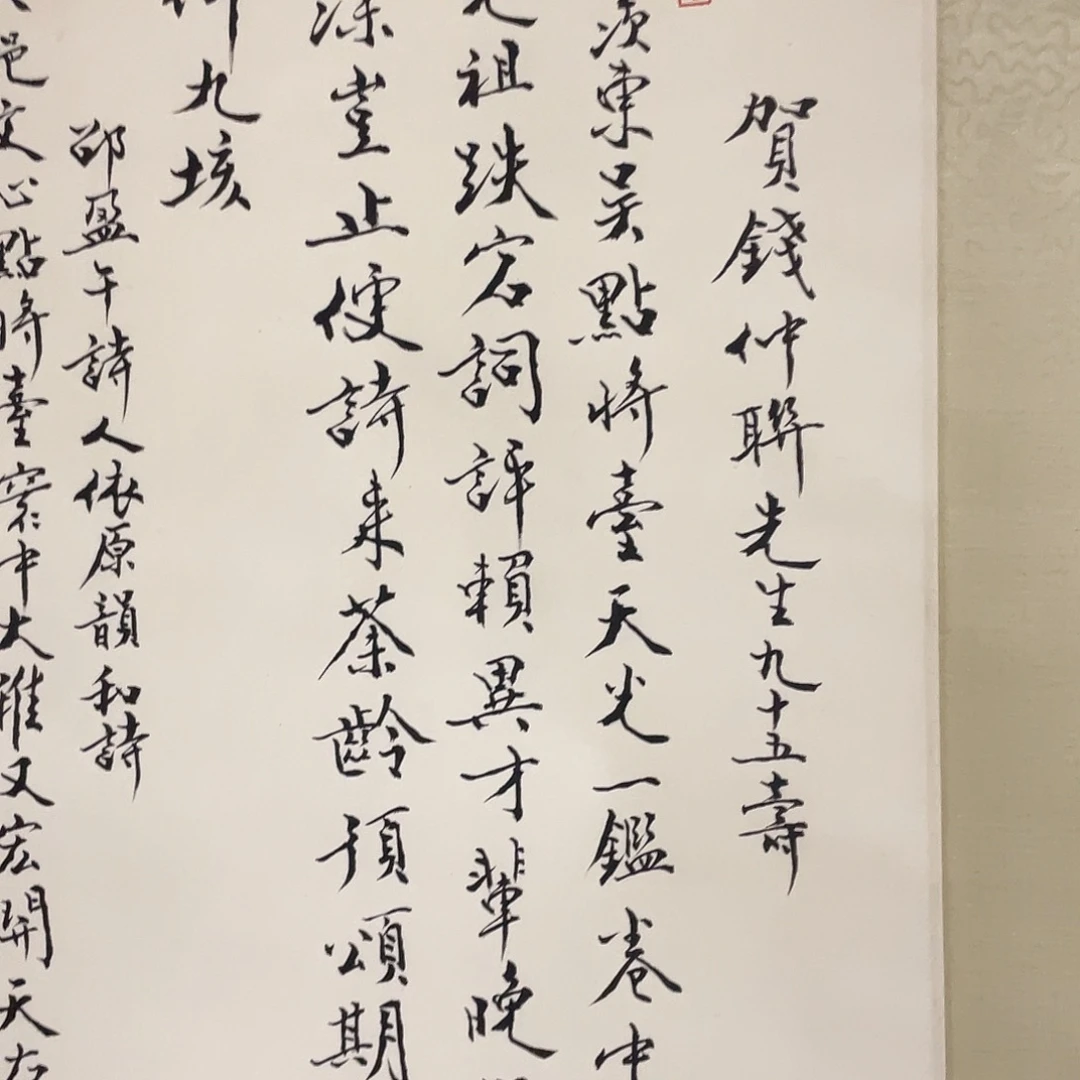 賀錢仲聯先生九十五壽
東吳點將臺天光一鑑卷中
祖跌宕詞評賴異才輩晚
深豈止便詩來茶齡預頌期
九垓
邵盈午詩人依原韻和詩
邑文心點將臺寰中大雅又宏開天